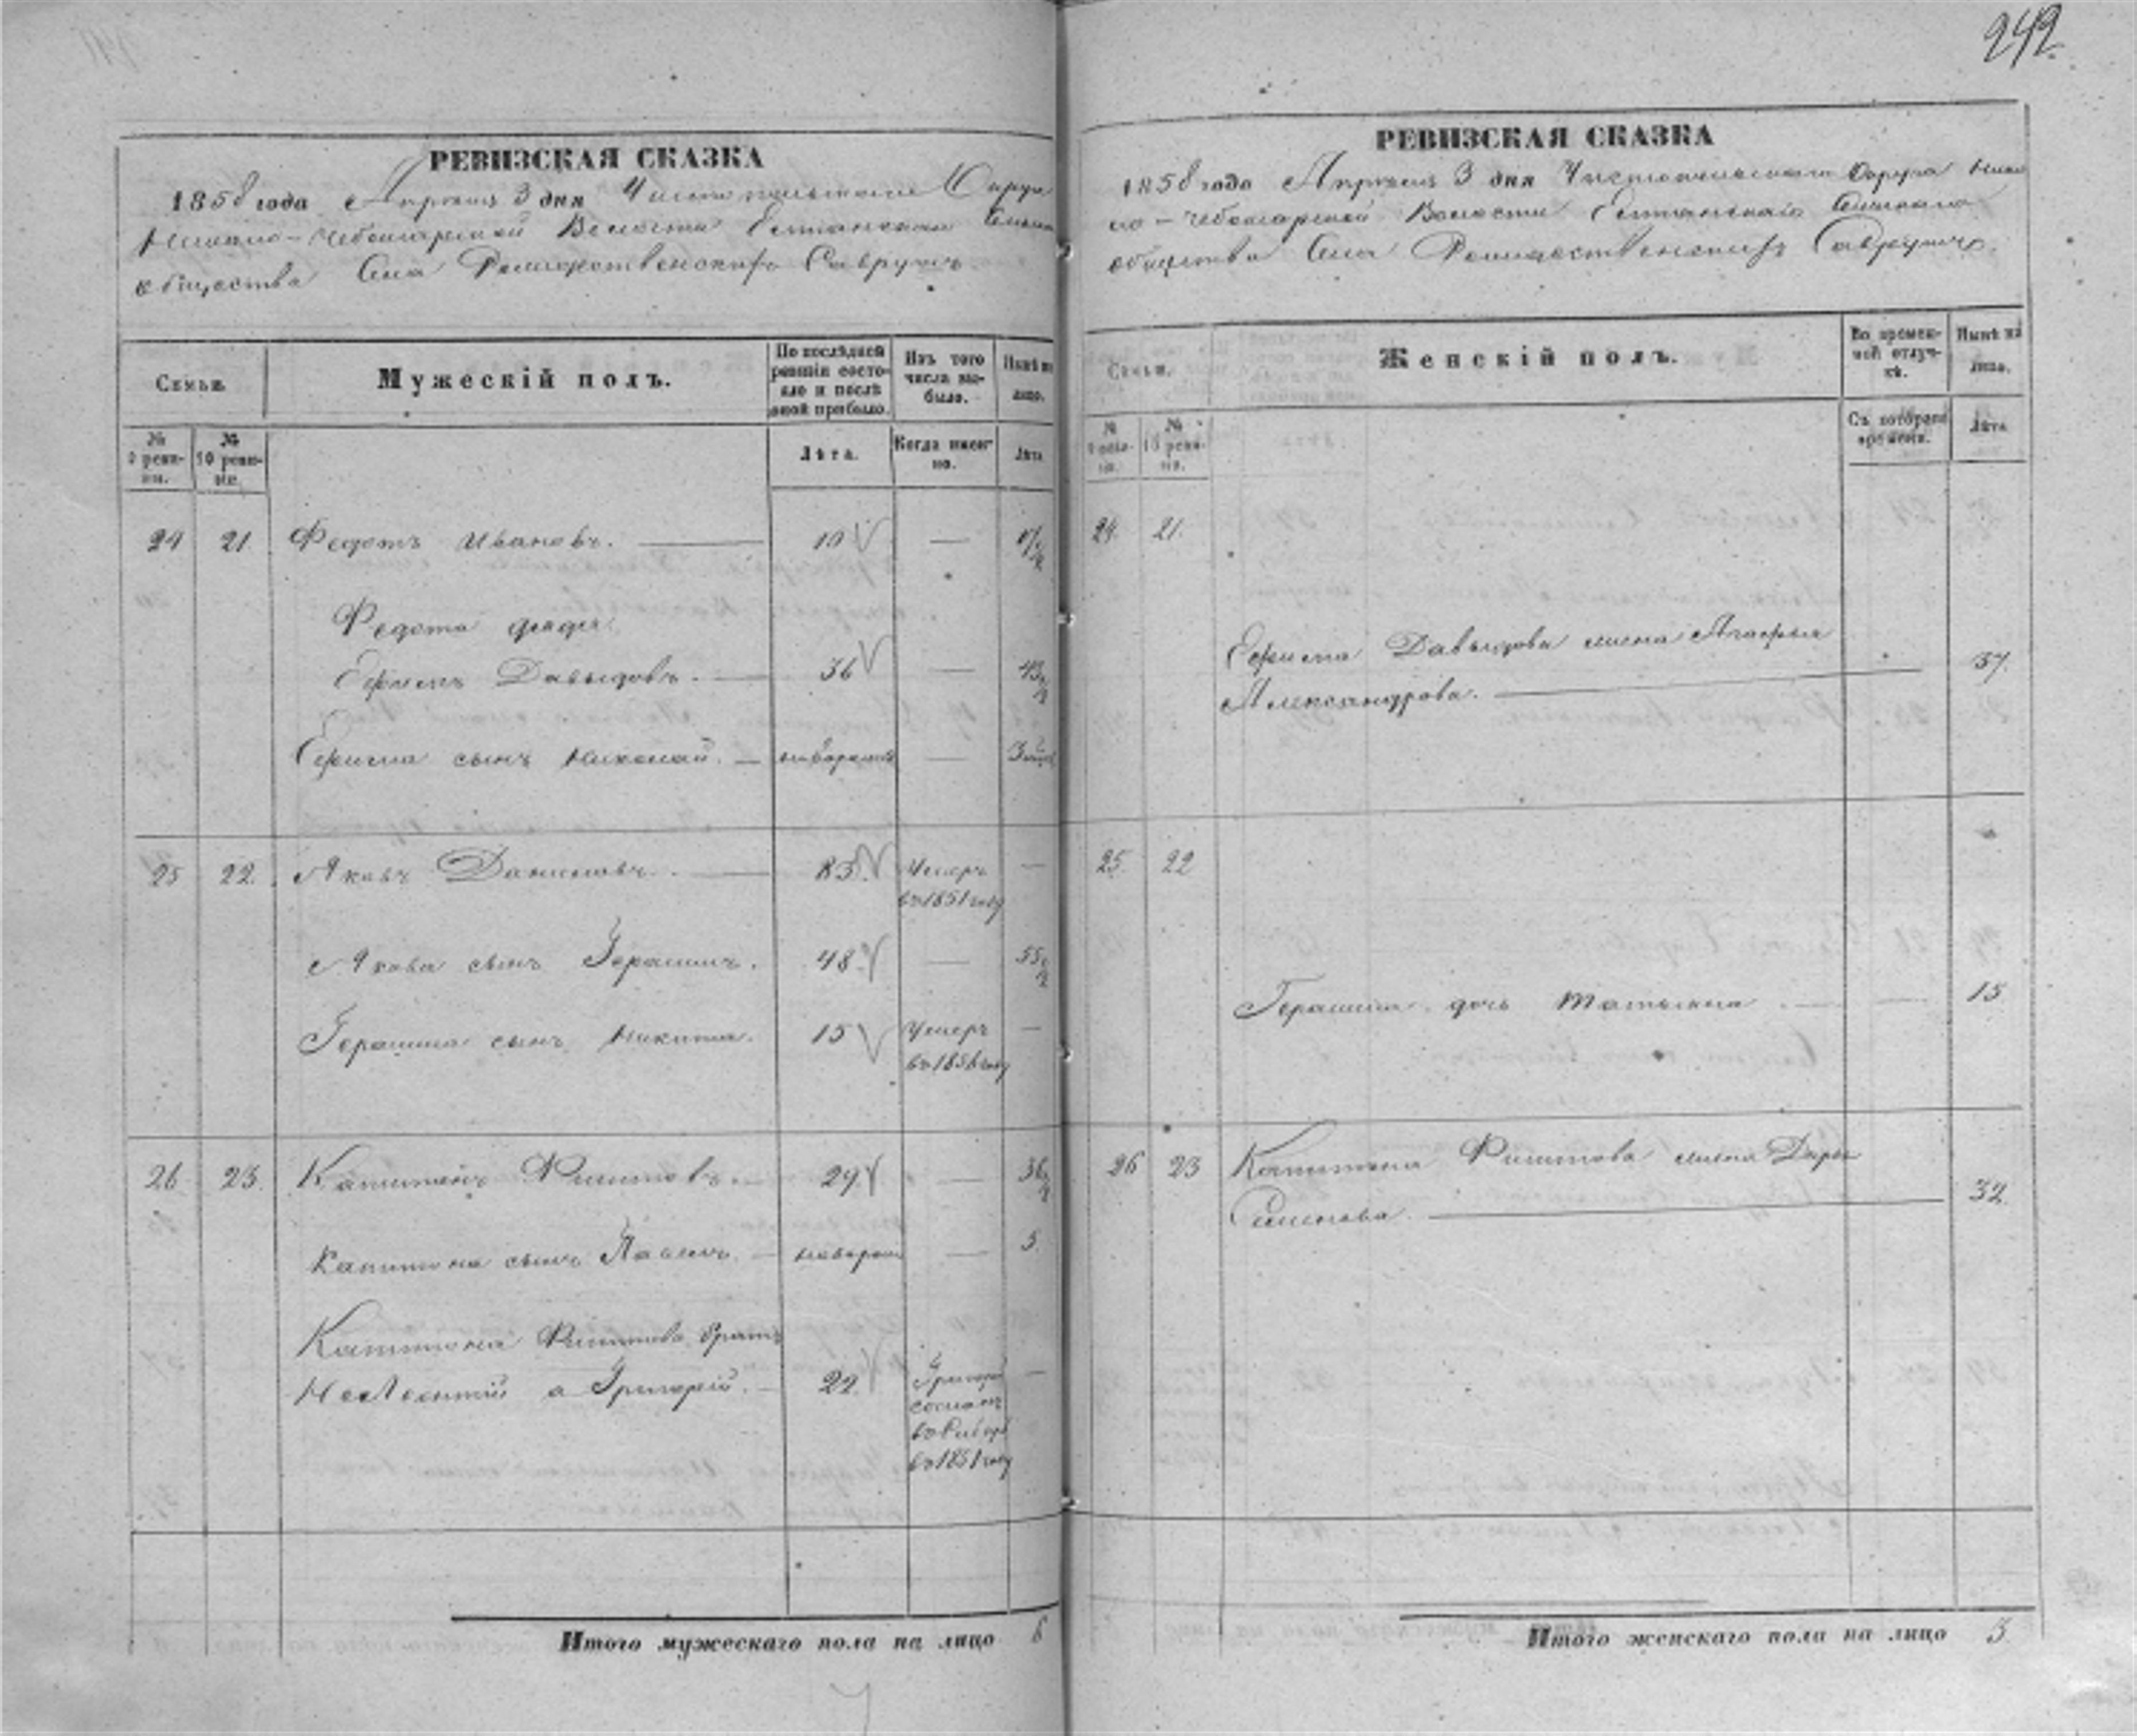 242.
РЕВИЗСКАЯ СКАЗКА
1858 года Апреля 3 дня Чистопольскаго Округа
Чебоксарской Волости Сельскаго
общества Села Рождественскаго Саврушъ.
Семьи.
Мужескій полъ.
По послѣдней ревизіи состояло и послѣ оной прибыло.
Изъ того числа выбыло.
Нынѣ на лицо.
№ 9 ревизіи.
№ 10 ревизіи.
Лѣта.
Когда именно.
Лѣта.
24 21. Федотъ Ивановъ. — 10 —
Федота дядя
Ефимъ Давыдовъ. — 36 — 43½
Ефима сынъ Николай. — новорожд —
25 22. Яковъ Даниловъ. — 83. Умеръ —
въ 1851 году
Якова сынъ Герасимъ. 48 — 55½
Герасима сынъ Никита. 15 Умеръ —
въ 1856 году
26 23. Капитонъ Филиповъ. — 29 — 36½
Капитона сынъ Павелъ. — новорож — 5.
Капитона Филипова братъ
Не Леонтій а Григорій. — 22. Григорій —
сосланъ
въ Сибирь
въ 1851 году
Итого мужескаго пола на лицо 6
РЕВИЗСКАЯ СКАЗКА
1858 года Апреля 3 дня Чистопольскаго Округа
Чебоксарской Волости Сельскаго
общества Села Рождественскаго Саврушъ.
Семьи.
Женскій полъ.
Во временной отлучкѣ.
Нынѣ на лицо.
№ 9 ревизіи.
№ 10 ревизіи.
Съ котораго времени.
Лѣта
24. 21.
Ефима Давыдова жена Агафья
Александрова. — 37.
25. 22
Герасима дочь Татьяна. — — 15
26 23 Капитона Филипова жена Дарья
Семенова. — 32.
Итого женскаго пола на лицо 3